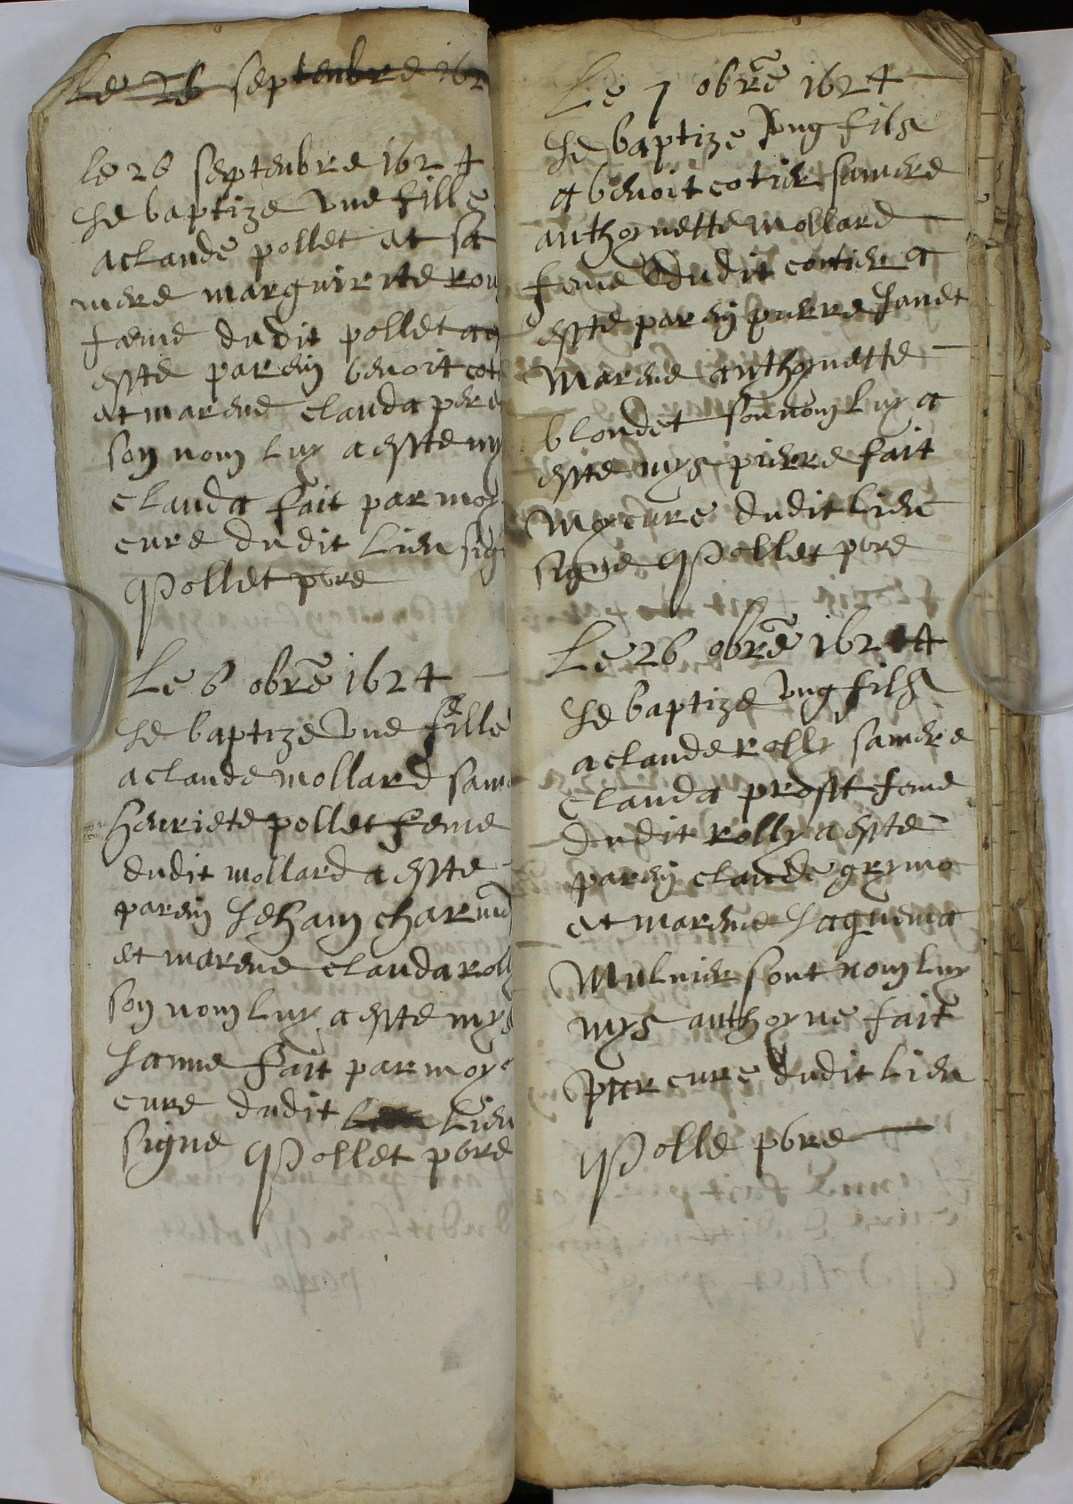 Le 26 septenbre 162
le 26 septenbre 1624
Je baptize vne fille
a claude pollet et sa
mere marguirite
feme dudit pollet
esste parein benoit
et marene clauda
son nom luy a esste
clauda fait par moy
cure dudit lieu
Pollet pbre
Le 6 obre 1624
Je baptize vne fille
a claude mollard
henriete pollet feme
dudit mollard a esste
parein Jehan
et marene clauda
son nom luy a esste mys
Janne fait par moy
cure dudit lieu
signe Pollet pbre
Le 7 obre 1624
Je baptize vng fils
a benoit cotier samere
anthoynette mollard
feme dudit cotier a
esste parein pierre Janet
Marene anthoynette
blondet son nom luy a
esste mys pierre fait
Moy cure dudit lieu
signe Pollet pbre
Le 26 obre 1624
Je baptize vng fils
a claude rolly samere
clauda prost feme
dudit rolly a esste
parein claude grymo
et marene Jaquema
Mulnier sont nom luy
mys anthoyne fait
par cure dudit lieu
Polle pbre